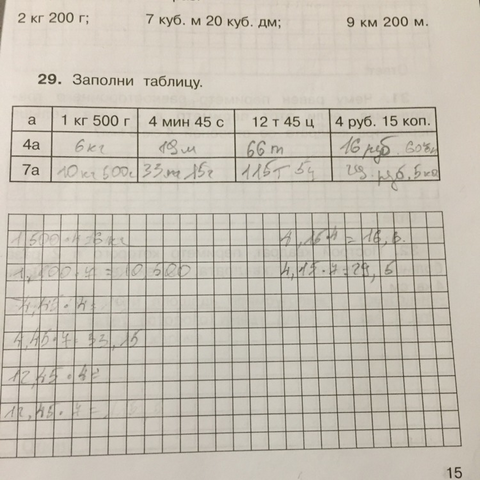 2 кг 200 г; 7 куб. м 20 куб. дм; 9 км 200 м.
29. Заполни таблицу.
а 1 кг 500 г 4 мин 45 с 12 т 45 ц 4 руб. 15 коп.
4а 6 кг 19 м 66 т 16 руб 60
7а 10 кг 500 г 33 m 15 с 115 т 5 ц 29 руб. 5
4,15 4 = 16,6
1,500 · 7 = 10 500 4,15 · 7 = 29, 5
4,45 · 4 =
4,45 · 7 = 33, 15
12,45 · 4 =
12,45 · 7 =
15